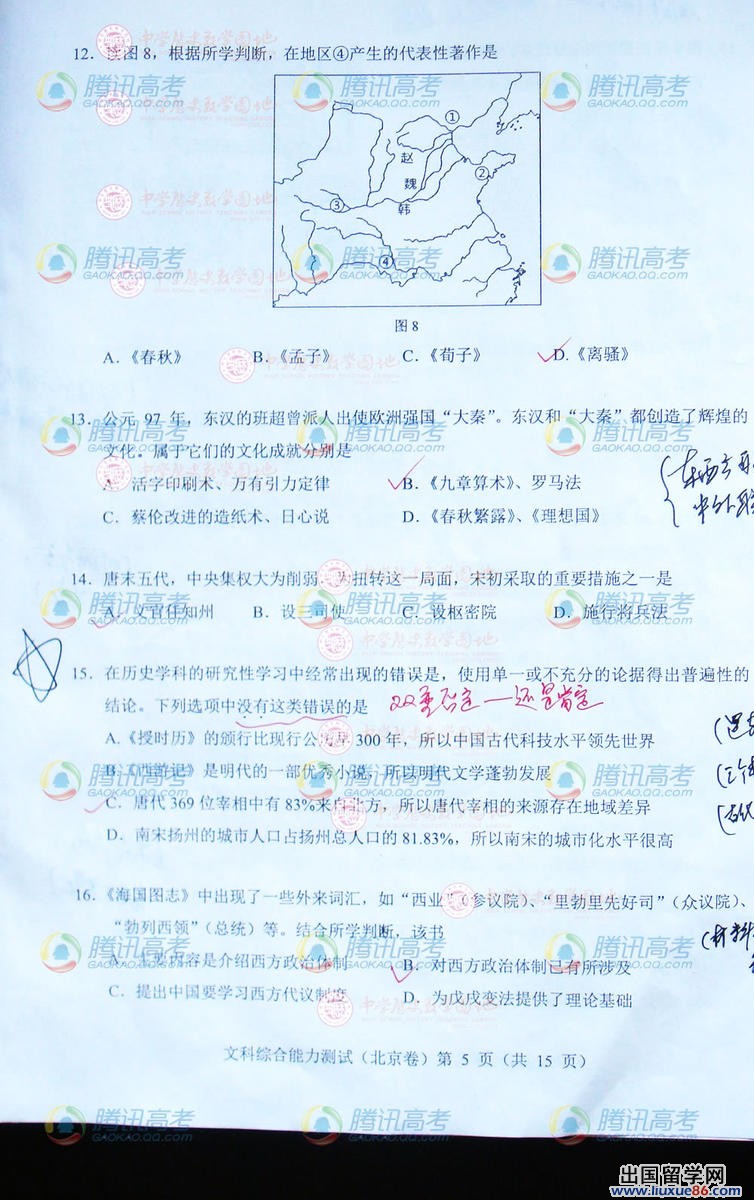 12. 读图 8，根据所学判断，在地区④产生的代表性著作是
①
赵
魏
②
③
韩
④
图 8
A.《春秋》 B.《孟子》 C.《荀子》 D.《离骚》
13. 公元 97 年，东汉的班超曾派人出使欧洲强国“大秦”。东汉和“大秦”都创造了辉煌的
文化。属于它们的文化成就分别是
A. 活字印刷术、万有引力定律 B.《九章算术》、罗马法
C. 蔡伦改进的造纸术、日心说 D.《春秋繁露》、《理想国》
14. 唐末五代，中央集权大为削弱。为扭转这一局面，宋初采取的重要措施之一是
A. 文官任知州 B. 设三司使 C. 设枢密院 D. 施行将兵法
15. 在历史学科的研究性学习中经常出现的错误是，使用单一或不充分的论据得出普遍性的
结论。下列选项中没有这类错误的是 双重否定—还是肯定
A.《授时历》的颁行比现行公历早 300 年，所以中国古代科技水平领先世界
B.《西游记》是明代的一部优秀小说，所以明代文学蓬勃发展
C. 唐代 369 位宰相中有 83%来自北方，所以唐代宰相的来源存在地域差异
D. 南宋扬州的城市人口占扬州总人口的 81.83%，所以南宋的城市化水平很高
16.《海国图志》中出现了一些外来词汇，如“西业”（参议院）、“里勃里先好司”（众议院）、
“勃列西领”（总统）等。结合所学判断，该书
A. 主要内容是介绍西方政治体制 B. 对西方政治体制已有所涉及
C. 提出中国要学习西方代议制度 D. 为戊戌变法提供了理论基础
文科综合能力测试（北京卷）第 5 页（共 15 页）
腾讯高考
GAOKAO.QQ.COM
中学历史教学园地
出国留学网
www.liuxue86.com